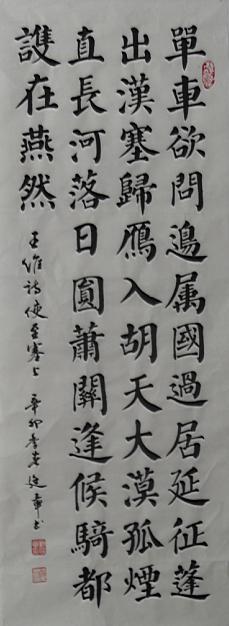 單車欲問邊属國過居延征蓬
出漢塞歸鴈入胡天大漠孤煙
直長河落日圓蕭關逢候騎都
謢在燕然
王维诗使至塞上 辛卯